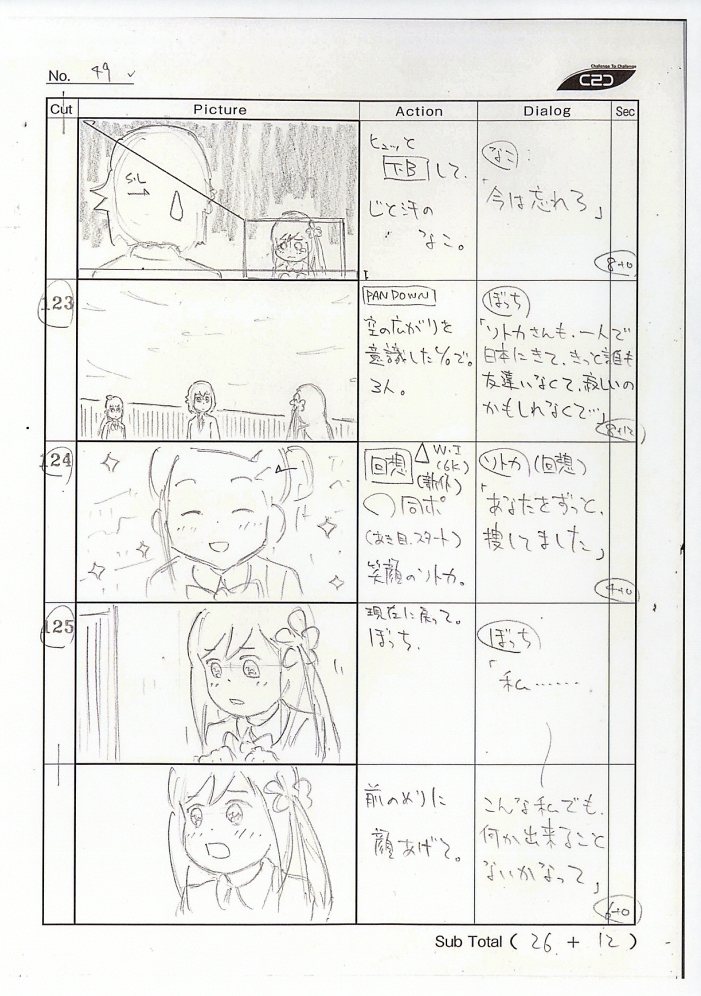 No. 49
Challenge To Challenge
C2C
Cut
Picture
Action
Dialog
Sec
S.L
ヒュッと
T.B して、
じと汗の
なこ。
なこ:
「今は忘れろ」
8+0
123
PAN DOWN
空の広がりを
意識した％で。
3人。
ぼっち
「ソトカさんも、一人で
日本にきて、きっと誰も
友達いなくて、寂しいの
かもしれなくて…」
8+12
124
回想
W.I
(6K)
同ポ
(あき目、スタート)
笑顔のソトカ。
ソトカ (回想)
「あなたをずっと、
捜してました」
4+0
125
現在に戻って。
ぼっち、
ぼっち
「私……
前のめりに
顔あげて。
こんな私でも、
何か出来ること
ないかなって」
6+0
Sub Total ( 26 + 12 )